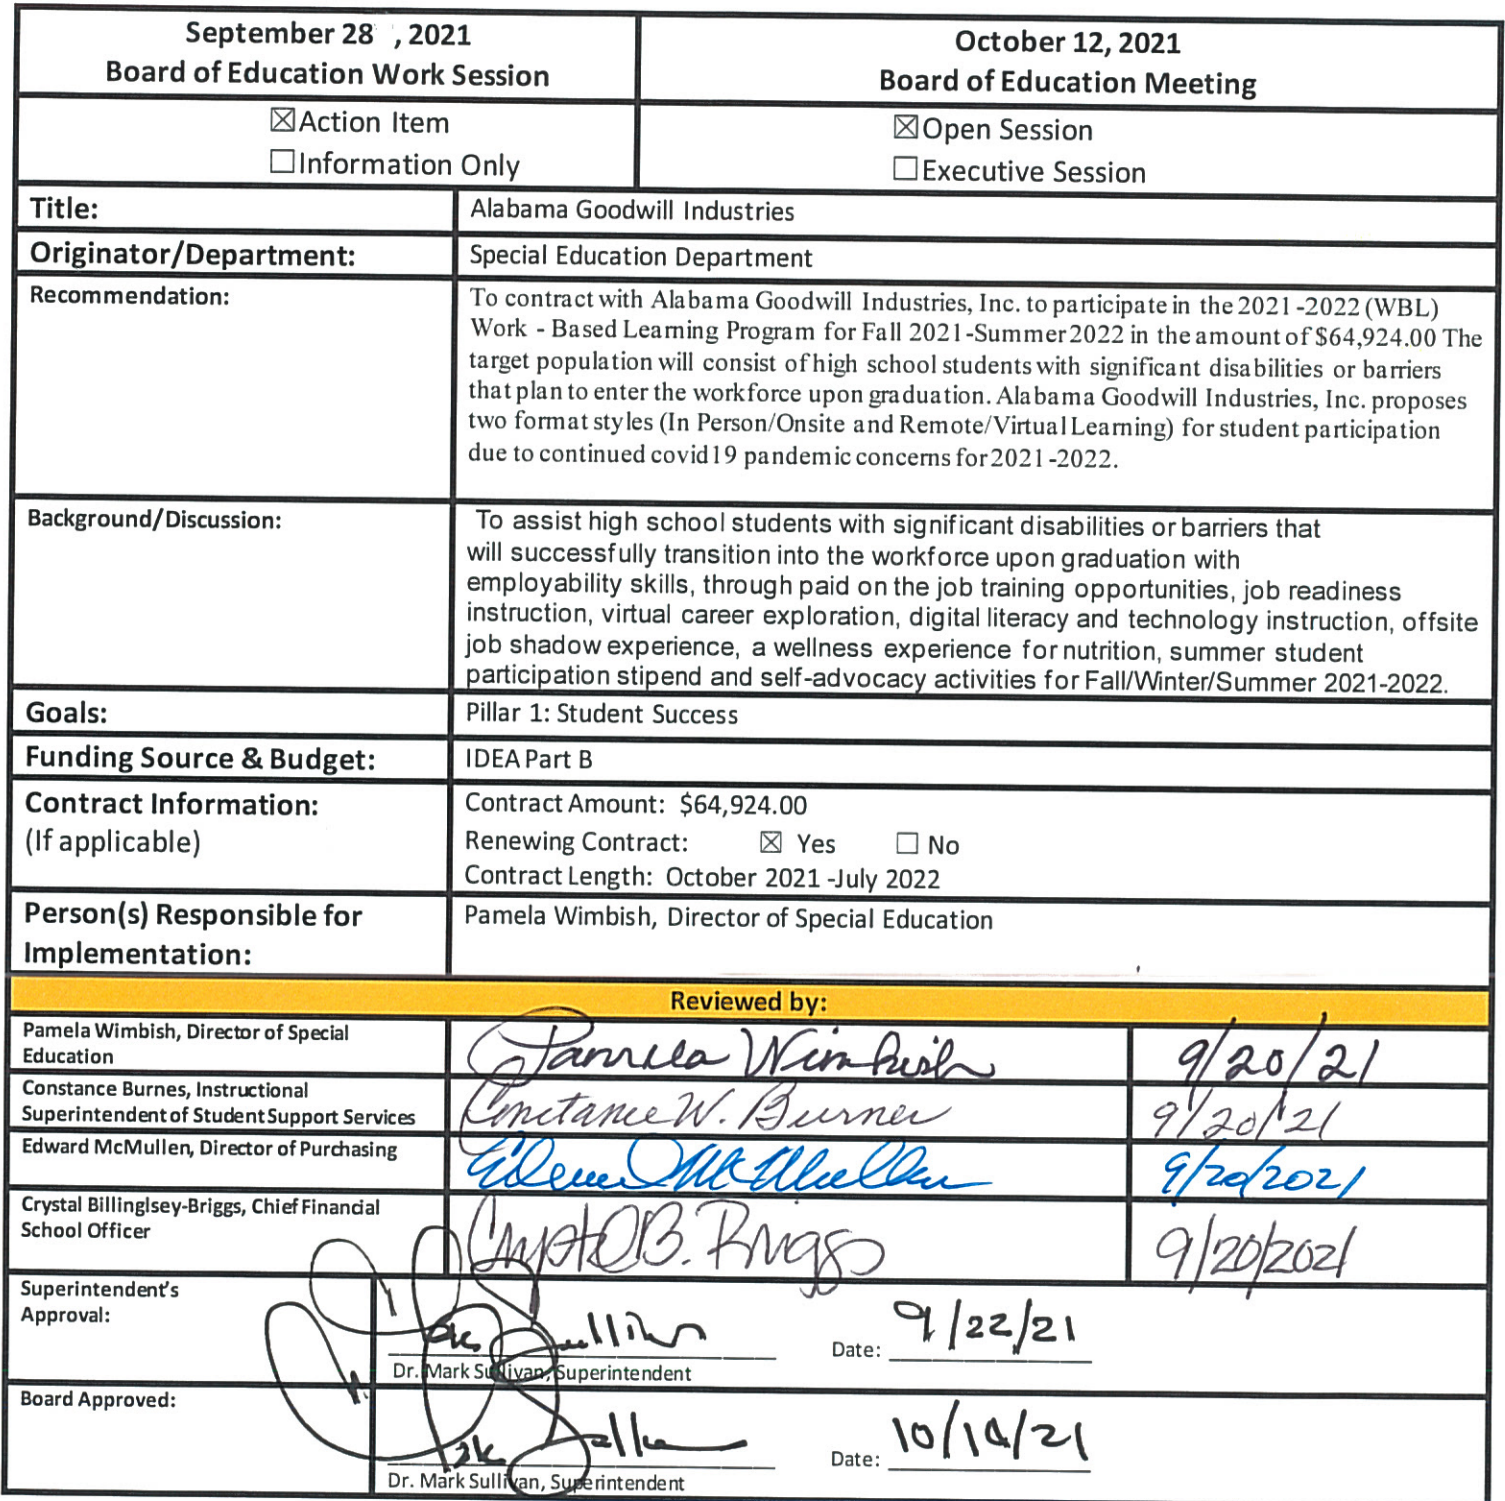 September 28 , 2021
Board of Education Work Session
October 12, 2021
Board of Education Meeting
☒Action Item
☐Information Only
☒Open Session
☐Executive Session
Title:
Alabama Goodwill Industries
Originator/Department:
Special Education Department
Recommendation:
To contract with Alabama Goodwill Industries, Inc. to participate in the 2021-2022 (WBL)
Work - Based Learning Program for Fall 2021-Summer 2022 in the amount of $64,924.00 The
target population will consist of high school students with significant disabilities or barriers
that plan to enter the workforce upon graduation. Alabama Goodwill Industries, Inc. proposes
two format styles (In Person/Onsite and Remote/Virtual Learning) for student participation
due to continued covid19 pandemic concerns for 2021-2022.
Background/Discussion:
To assist high school students with significant disabilities or barriers that
will successfully transition into the workforce upon graduation with
employability skills, through paid on the job training opportunities, job readiness
instruction, virtual career exploration, digital literacy and technology instruction, offsite
job shadow experience, a wellness experience for nutrition, summer student
participation stipend and self-advocacy activities for Fall/Winter/Summer 2021-2022.
Goals:
Pillar 1: Student Success
Funding Source & Budget:
IDEA Part B
Contract Information:
(If applicable)
Contract Amount: $64,924.00
Renewing Contract: ☒ Yes ☐ No
Contract Length: October 2021 -July 2022
Person(s) Responsible for
Implementation:
Pamela Wimbish, Director of Special Education
Reviewed by:
Pamela Wimbish, Director of Special
Education
Pamela Wimbish
9/20/21
Constance Burnes, Instructional
Superintendent of Student Support Services
Constance W. Burnes
9/20/21
Edward McMullen, Director of Purchasing
Edward McMullen
9/20/2021
Crystal Billinglsey-Briggs, Chief Financial
School Officer
Crystal B. Briggs
9/20/2021
Superintendent's
Approval:
Date: 9/22/21
Dr. Mark Sullivan, Superintendent
Board Approved:
Date:
Dr. Mark Sullivan, Superintendent